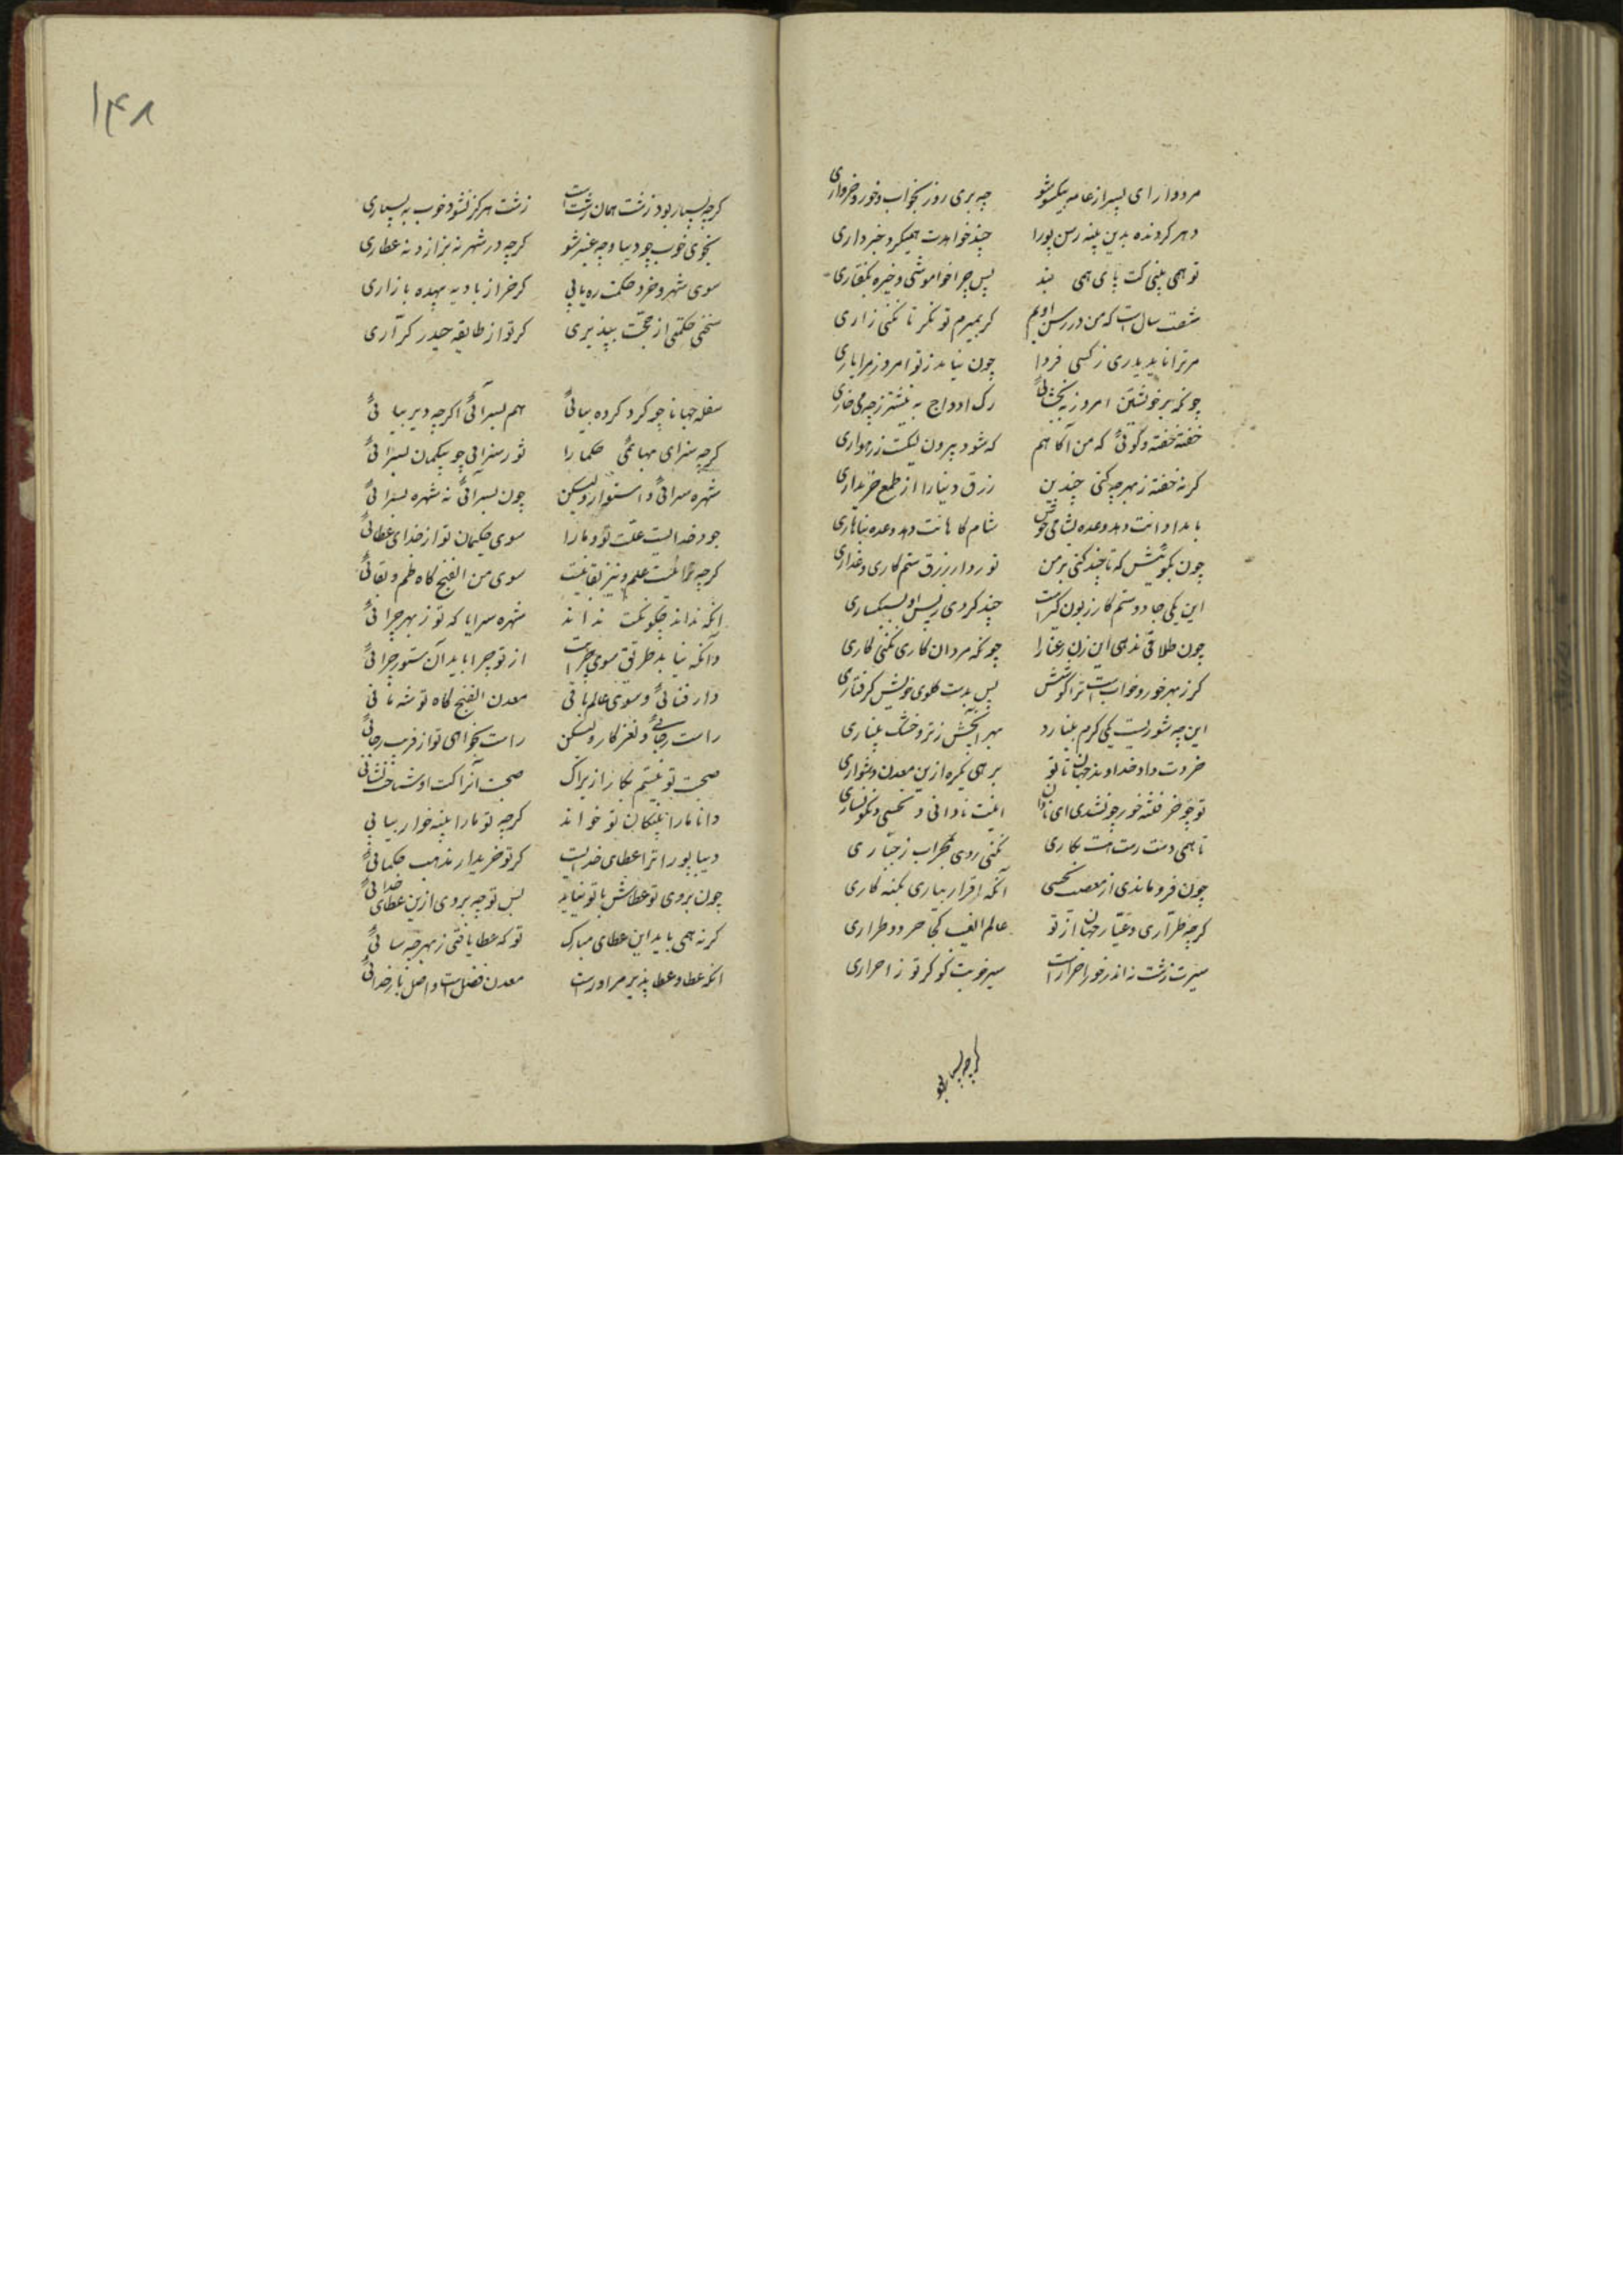 مرد وار ای پسر از عامه بیکسو شو چه بری روز بخواب و خور و خرواری
دهر گردنده بدین پیسه رسن پورا چند خواهدت همیکرد بخبرداری
تو همی بینی کت پای همی بندد پس چرا خاموشی و خیره
شصت سال است که من در رسن اویم گر بمیرم تو نگر تا نکنی زاری
مر ترا ناید یاری ز کسی فردا چون نیاید ز تو امروز مرا یاری
چونکه بر خویشتن امروز نبخشائی رگ اوداج به نیشتر ز چه میخاری
خفته خفته و گوئی که من آگاهم که شود بیرون لیکت ز رهواری
گر نه خفته ز بهر چه کنی چندین زرق دنیا را از طمع خریداری
بامدادانت دهد وعده بشامی خوش شامگاهانت دهد وعده بناهاری
چون بگوئیش که تا چند کنی بر من تو ز دار زرق ستم کاری و غداری
این یکی جادو ستمکار زبون گیر است چند گردی ز پس او بسبکساری
چون طلاقی ندهی این زن رعنا را چونکه مردان کاری نکنی کاری
گر ز بهر خور و خواب است ترا کوشش پس بدست گلوی خویش گرفتاری
این چه شوریست یکی کرم بینبارد بهر آنچش ز تر و خشک بینباری
خردت داد خداوند جهان تا تو برهی یکره ازین معدن دشواری
تو چو خر فتنه خور چون شدی ای نادان اینت نادانی و نحسی و نگونساری
تا همی دستت رسد است بکاری نکنی روی بمحراب ز جباری
چون فرو ماندی از معصیت نحسی آنگه اقرار بیاری بگنه کاری
گرچه طراری و عیار جهان از تو عالم الغیب کجا خرد طراری
سیرت زشت نه اندر خور احرار است سیر خوبت کو گر تو ز احراری
گرچه بسیار بود
۱۴۸
گرچه بسیار بود زشت همان زشت است زشت هرگز نشود خوب به بسیاری
بخوی خوب چو دیبا و چه عنبر شو گرچه در شهر نه بزاز و نه عطاری
سوی شهر و خرد و حکمت ره یابی گر خر از بادیه بیهده باز آری
سخن حکمتی از حجت بپذیری گر تو از طایفه حیدر کراری
سفله جهانا چو گرد گرد بنائی هم بسر آئی اگرچه دیر بیائی
گرچه سرای بهایمی حکما را تو نه سرائی چو بیگمان بسر آئی
شهره سرائی و استوار ولیکن چون بسر آئی نه شهره بسرائی
جود خدایست علت تو و ما را سوی حکیمان تو از خدای عطائی
گرچه عنائیست علم و نیز بقائیست سوی من الفنج گاه علم و بقائی
آنکه نداند چگونگیت نداند شهره سرایا که تو ز بهر چرائی
وانکه نیابد طریق سوی چرات از تو چرا باید آن ستور چرائی
دار فنائی و سوی عالم باقی معدن الفنج گاه توشه مائی
راست رجائی و نغز کار ولیکن راست نخواهی تو از فریب رجائی
صحبت تو نیستم بکار ازیراک صحبت آنرا کت او شناخت نشائی
دانا ما را بچگان تو خواند گرچه تو ما را به پیشه خوار بیائی
دیبا پورا ترا عطای خدایست گر تو خریدار مذهب حکمائی
چون بروی تو عطاش با تو نیاید پس تو چه بروی ازین عطای خدائی
گر نه همی باید این عطای مبارک تو که عطا یافتی ز بهر چه سائی
آنکه عطا و عطا پذیر مر او راست معدن فضل است و اصل بار خدائی